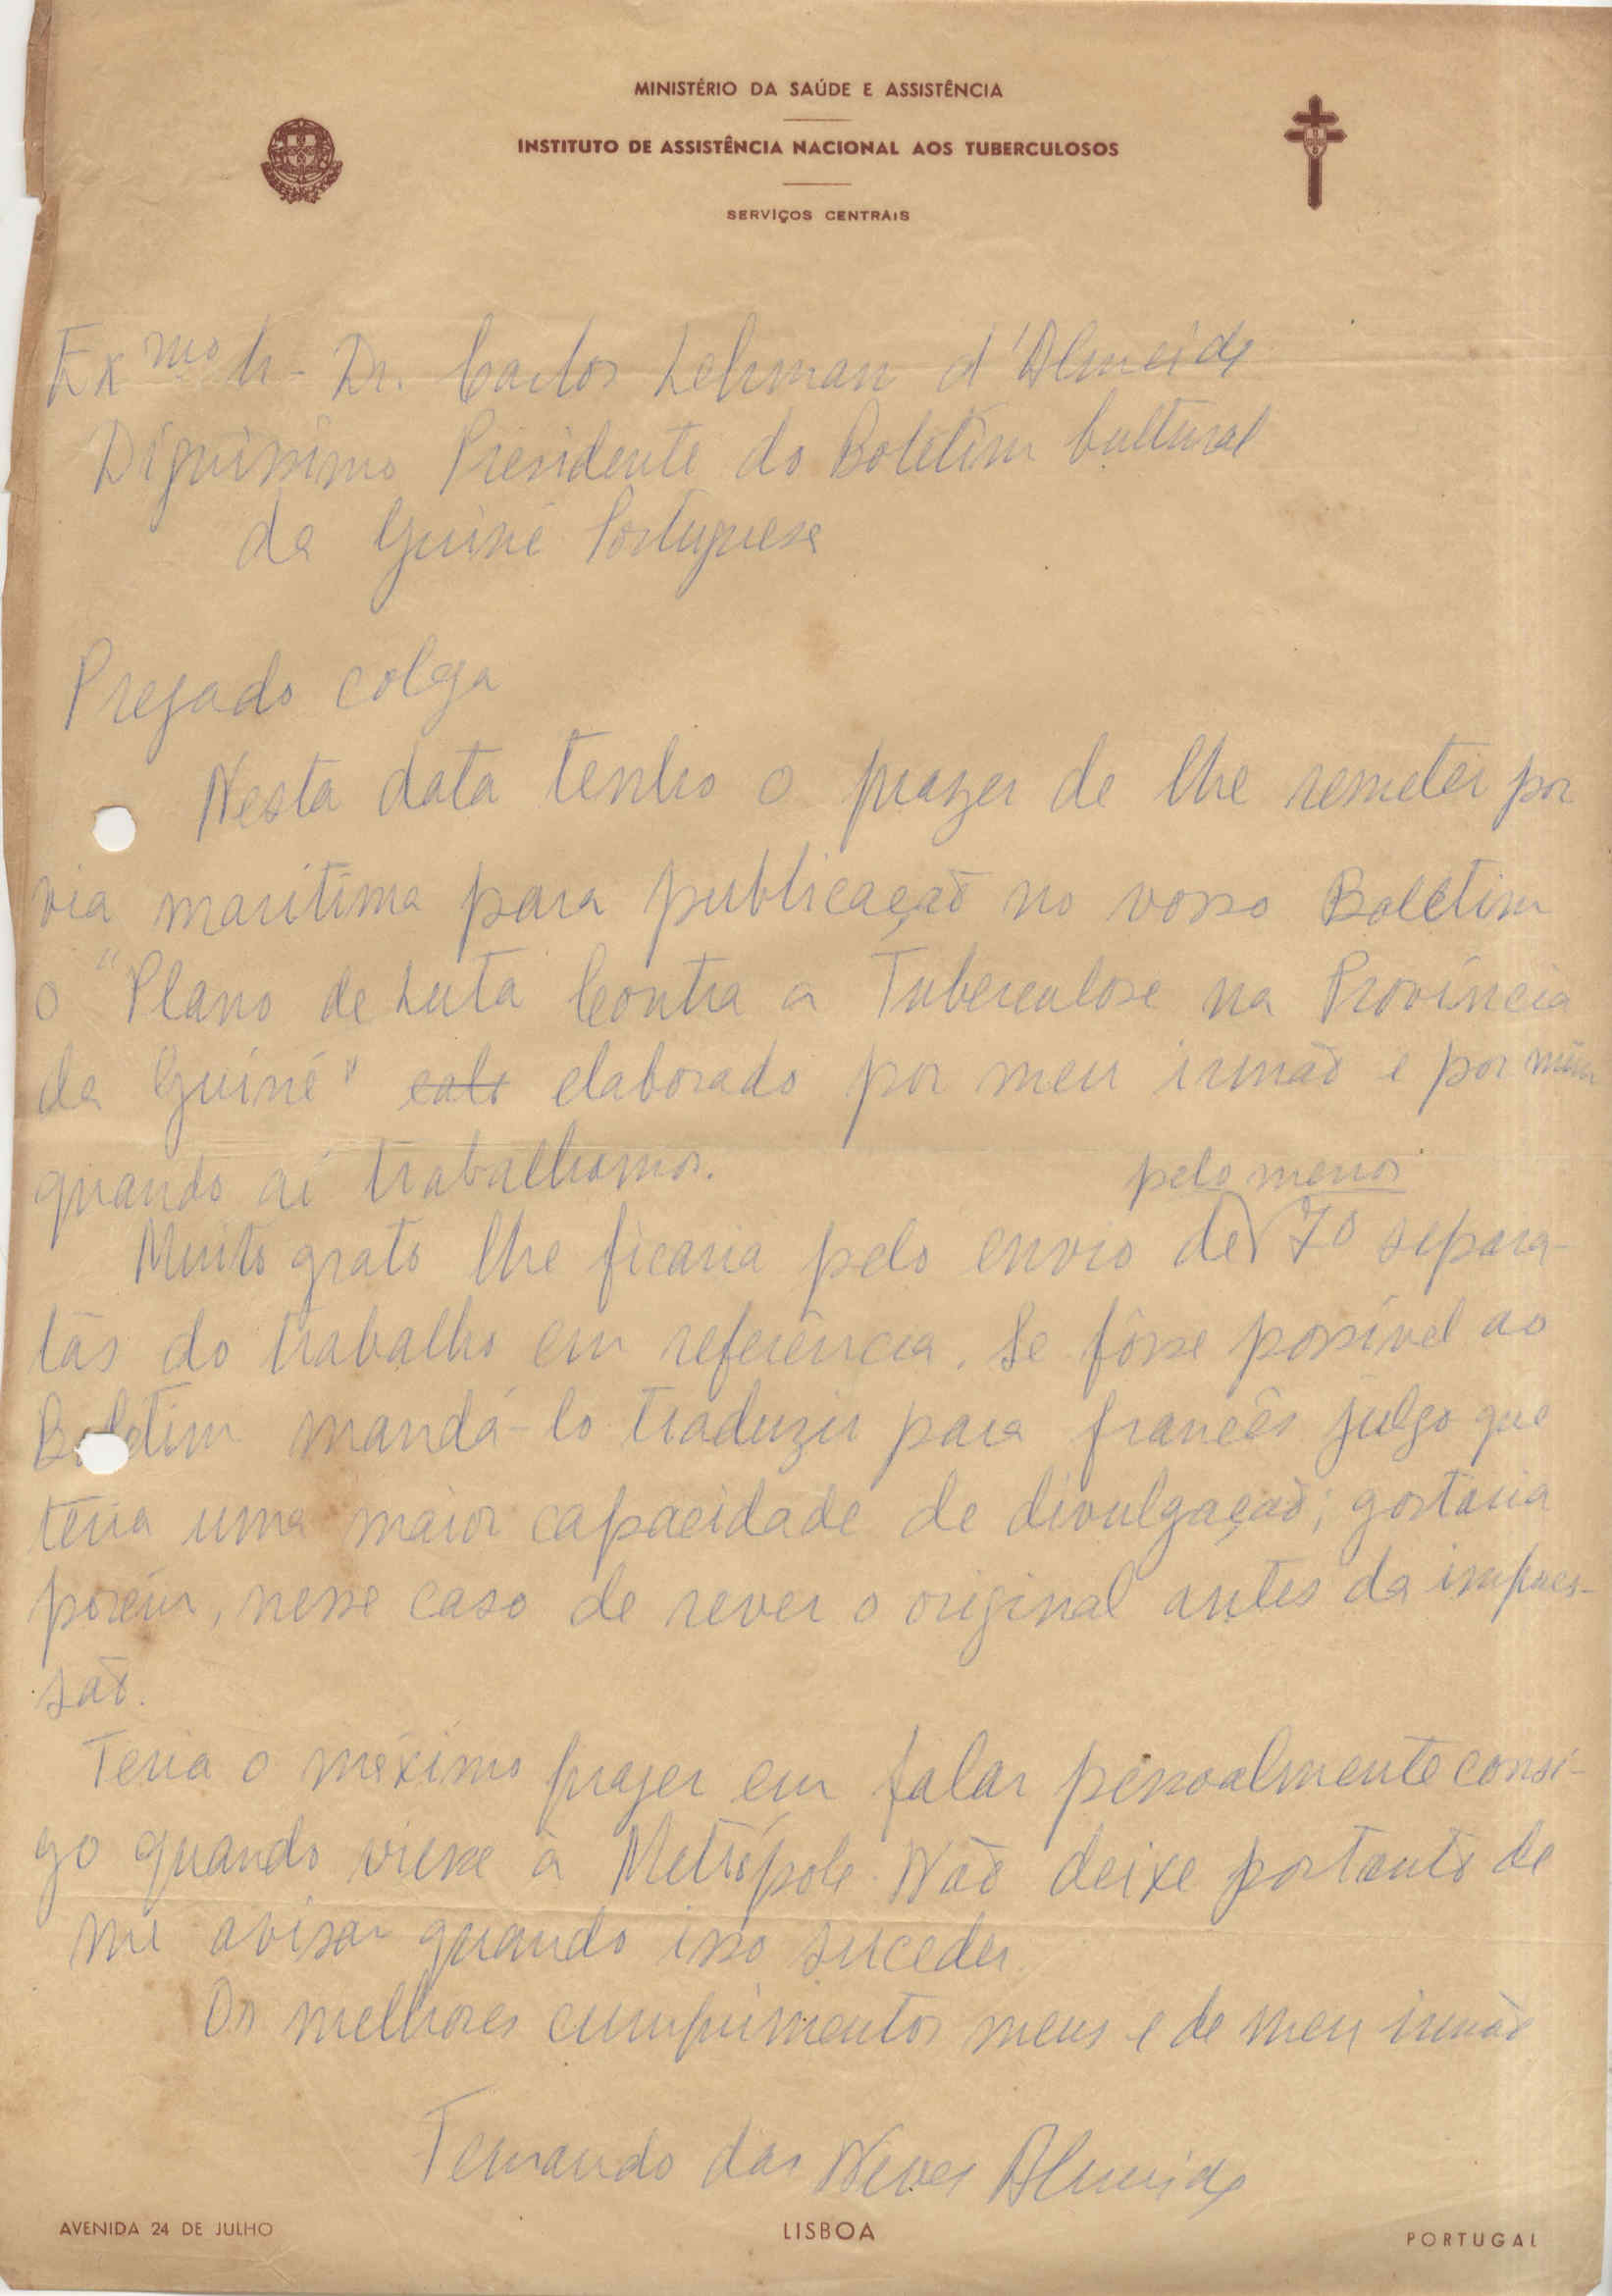 MINISTÉRIO DA SAÚDE E ASSISTÊNCIA
INSTITUTO DE ASSISTÊNCIA NACIONAL AOS TUBERCULOSOS
SERVIÇOS CENTRAIS
Exmo Sr. Dr. Carlos Lehman d'Almeida
Digníssimo Presidente do Boletim Cultural
da Guiné Portuguesa
Prezado colega
Nesta data tenho o prazer de lhe remeter por
via marítima para publicação no vosso Boletim
o "Plano de Luta Contra a Tuberculose na Província
da Guiné" elaborado por meu irmão e por mim
quando aí trabalhamos.
pelo menos
Muito grato lhe ficaria pelo envio de 70 separa-
tas do trabalho em referência. Se fôsse possível ao
Boletim mandá-lo traduzir para francês julgo que
teria uma maior capacidade de divulgação; gostaria
porém, nesse caso de rever o original antes da impres-
são.
Teria o máximo prazer em falar pessoalmente consi-
go quando viesse à Metrópole. Não deixe portanto de
me avisar quando isso suceder.
Os melhores cumprimentos meus e de meu irmão
Fernando das Neves Almeida
AVENIDA 24 DE JULHO
LISBOA
PORTUGAL